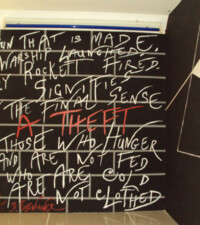 UN THAT IS MADE,
WARSHIP LAUNCHED,
ROCKETT FIRED.
SIGNIFIES
THE FINAL SENSE
A THEFT
THOSE WHO HUNGER
AND ARE NOT FED
WHO ARE COLD
ARE NOT CLOTHED